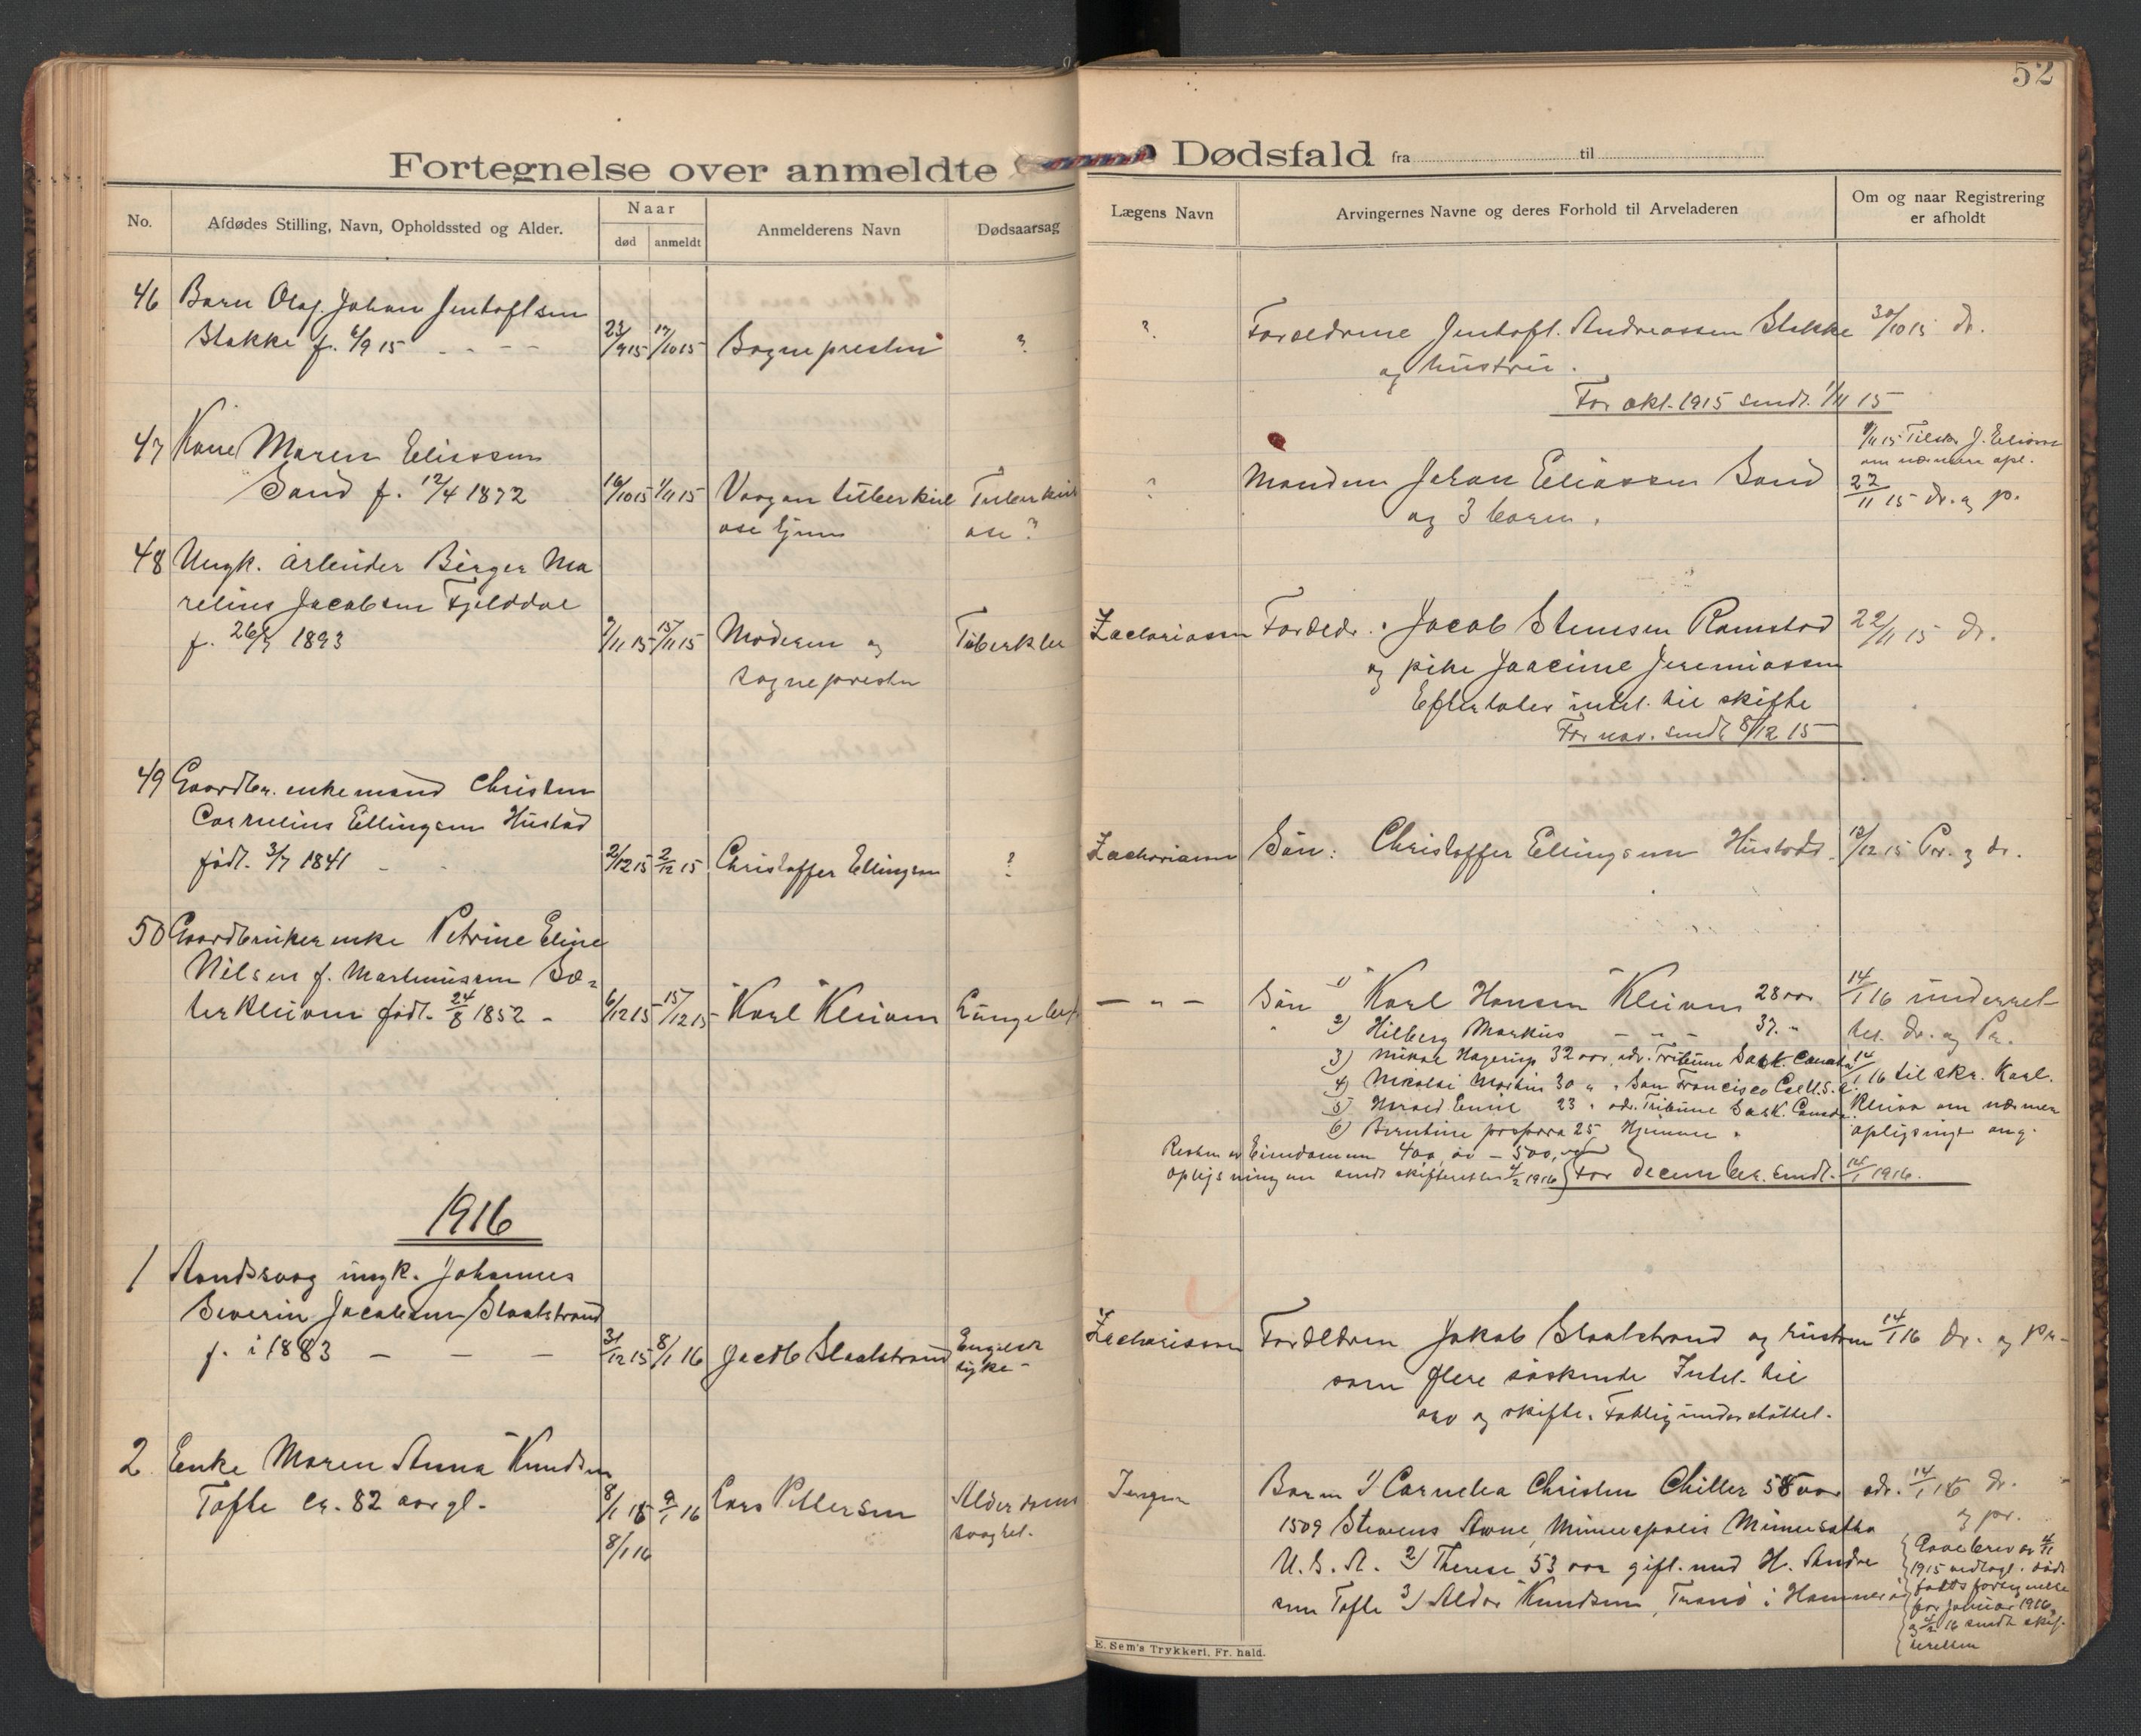 52
Fortegnelse over anmeldte Dødsfald fra til
No.
Afdødes Stilling, Navn, Opholdssted og Alder.
Naar
død
anmeldt
Anmelderens Navn
Dødsaarsag
Lægens Navn
Arvingernes Navne og deres Forhold til Arveladeren
Om og naar Registrering
er afholdt
46 Barn Olaf Johan Jentoftsen
Stokke f. 6/9 15 23/9 15 17/10 15 Sognepresten ? ? Forældrene Jentoft Andreassen Stokke 30/10 15 dr.
og hustru.
For okt. 1915 sendt 1/11 15
47 Kone Maren Eliassen
Sand f. 12/4 1872 16/10 15 1/11 15 Vaagan tuberkul Tuberkul ? Manden Johan Eliassen Sand
ose hjem ose ? og 3 barn.
9/11 15 Tilskr. J. Eliassen
om nærmere opl.
22/11 15 dr. og pr.
48 Ungk. arbeider Birger Ma
relius Jacobsen Fjelddal
f. 26/5 1893 7/11 15 15/11 15 Moderen og Tuberkler Zachariassen Forældr.: Jacob Stensen Ramstad 22/11 15 dr.
sognepresten og pike Joacime Jeremiassen
Efterlater intet til skifte
For nov. sendt 8/12 15
49 Gaardbr. enkemand Christen
Cornelius Ellingsen Hustad
født 3/7 1841 2/12 15 2/12 15 Christoffer Ellingsen ? Zachariassen Søn: Christoffer Ellingsen Hustad. 12/12 15 Pr. og dr.
50 Gaardbruker enke Petrine Eline
Nilsen f. Martinussen Sæ-
terkleiven født 24/8 1852 - 6/12 15 15/12 15 Karl Kleiven Lungebet — " — Søn 1) Karl Hansen Kleiven 28 aar 14/1 16 underret-
" 2) Hilberg Markus — " — 37. " tet dr. og Pr.
3) Mikal Hagerup 32 aar adr. Tribune Sask. Canada 14/1 16 til skr. Karl
4) Nikolai Martin 30 " " San Francisco Cal U.S.A.
5) Harald Emil 23 " adr. Tribune Sask. Canada. Kleiva om nærmere
6) Berntine 25 Hjemme " oplysninger ang.
Resten av Eiendommen 400 a - 500,
oplysningen sendt skifteretten 4/2 1916 For december sendt 14/1 1916.
1916
1 Aandssvag ungk. Johannes
Severin Jacobsen Slaatstrand
f. i 1883 — — — 31/12 15 8/1 16 Jacob Slaatstrand Engelsk
syke - Zachariassen Forældren Jakob Slaatstrand og hustru 14/1 16 dr. og pr.
som flere søskende Intet til
arv og skifte. Fattigunderstøttet.
2. Enke Maren Anna Knudsen
Tofte ca. 82 aar gl. 8/1 16 9/1 16 Lars Pettersen Alderdoms
svaghet.
8/1 16
Jensen Barn 1) Cornelia Christen Chiller 58 aar adr. 14/1 16 dr.
1509 Stevens Avvne, Minneapolis Minnesotha og pr.
U.S.A. 2) Therese 53 aar gift med H. Andre
sen Tofte 3) Aldor Knudsen, Tranø i Hammerø
Gavebrev av 4/11
1915 vedlagt døds
faldsfortegnelse
for januar 1916
og 4/2 16 sendt skif-
teretten
E. Sem's Trykkeri, Fr. hald.